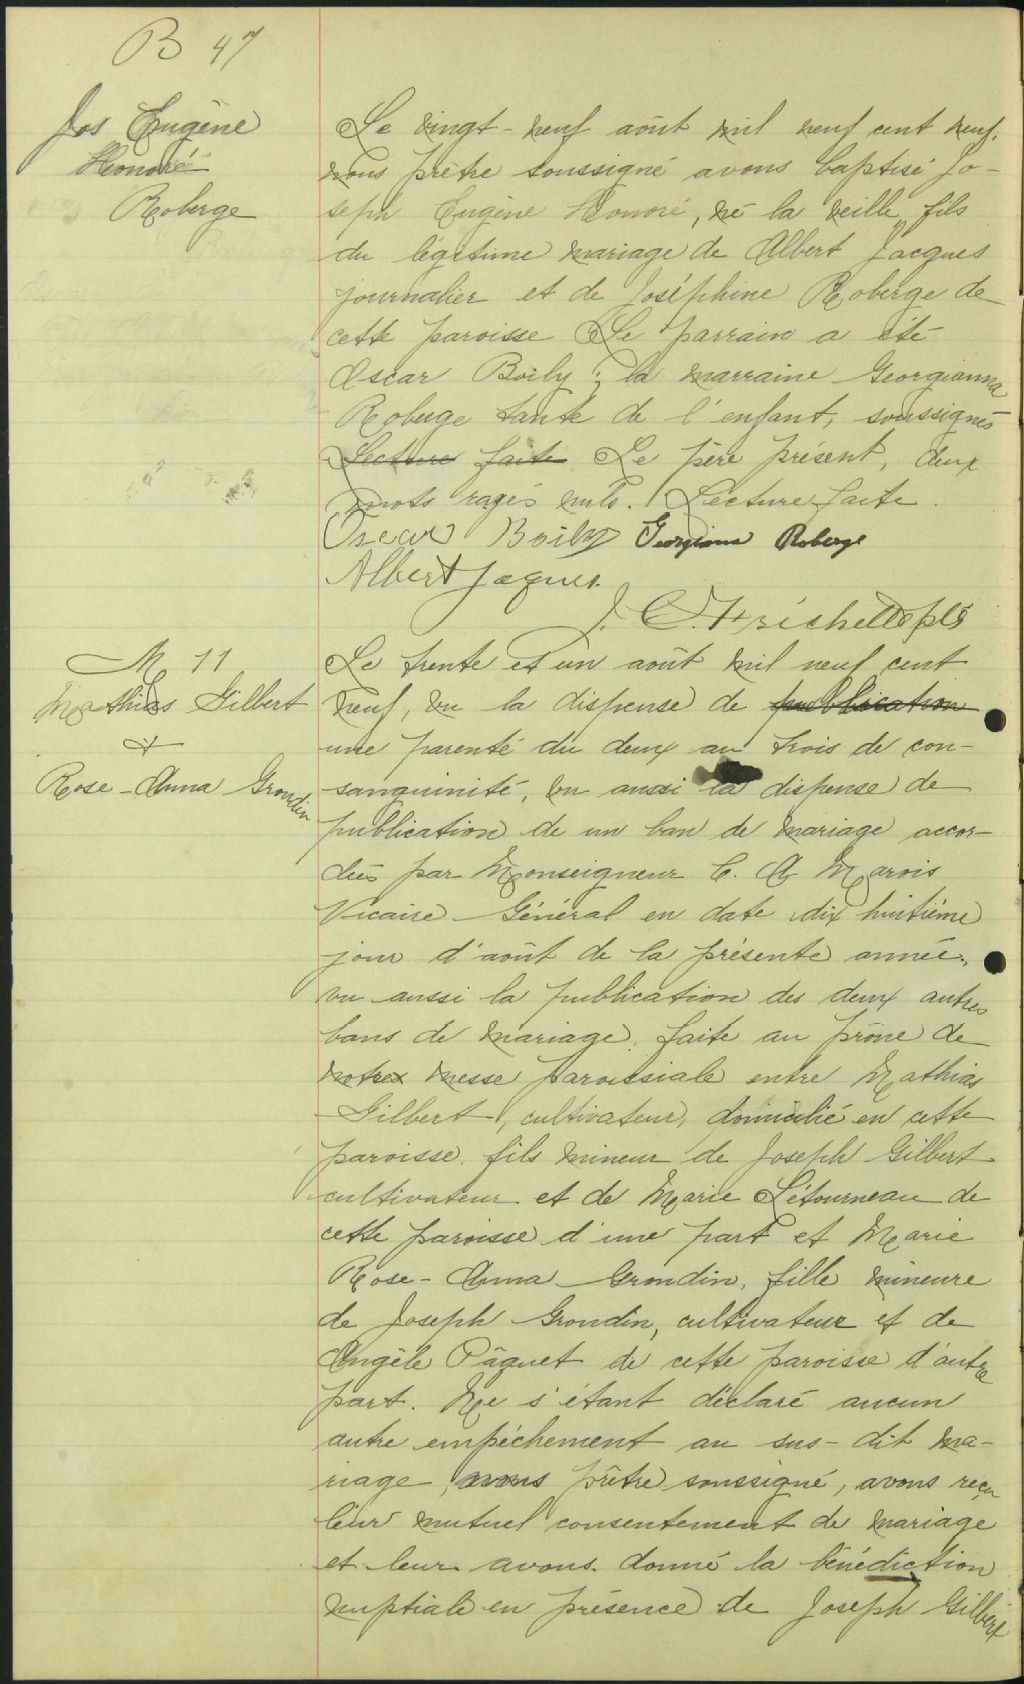 B 47
Jos Eugène
Honoré
Roberge
Le vingt-neuf août mil neuf cent neuf,
nous prêtre soussigné avons baptisé Jo-
seph Eugène Honoré, né la veille, fils
du légitime mariage de Albert Jacques
journalier et de Joséphine Roberge de
cette paroisse Le parrain a été
Oscar Boily ; la marraine Georgianna
Roberge tante de l'enfant, soussignés
Lecture faite Le père présent, deux
mots rayés nuls. Lecture faite.
Oscar Boily Georgiana Roberge
Albert Jaques.
J. Frichette ptr
M 11
Mathias Gilbert
&
Rose-Anna Grondin
Le trente et un août mil neuf cent
neuf, vu la dispense de publication
une parenté du deux au trois de con-
sanguinité, vu aussi la dispense de
publication de un ban de mariage accor-
dées par Monseigneur C. A Marois
Vicaire Général en date dix huitième
jour d'août de la présente année,
vu aussi la publication des deux autres
bans de mariage, faite au prône de
notre messe paroissiale entre Mathias
Gilbert, cultivateur, domicilié en cette
paroisse, fils mineur de Joseph Gilbert
cultivateur et de Marie Létourneau de
cette paroisse d'une part et Marie
Rose-Anna Grondin, fille mineure
de Joseph Grondin, cultivateur et de
Angèle Pâquet de cette paroisse d'autre
part. Ne s'étant déclaré aucun
autre empêchement au sus-dit ma-
riage, prêtre soussigné, avons reçu
leur mutuel consentement de mariage
et leur avons donné la bénédiction
nuptiale en présence de Joseph Gilbert